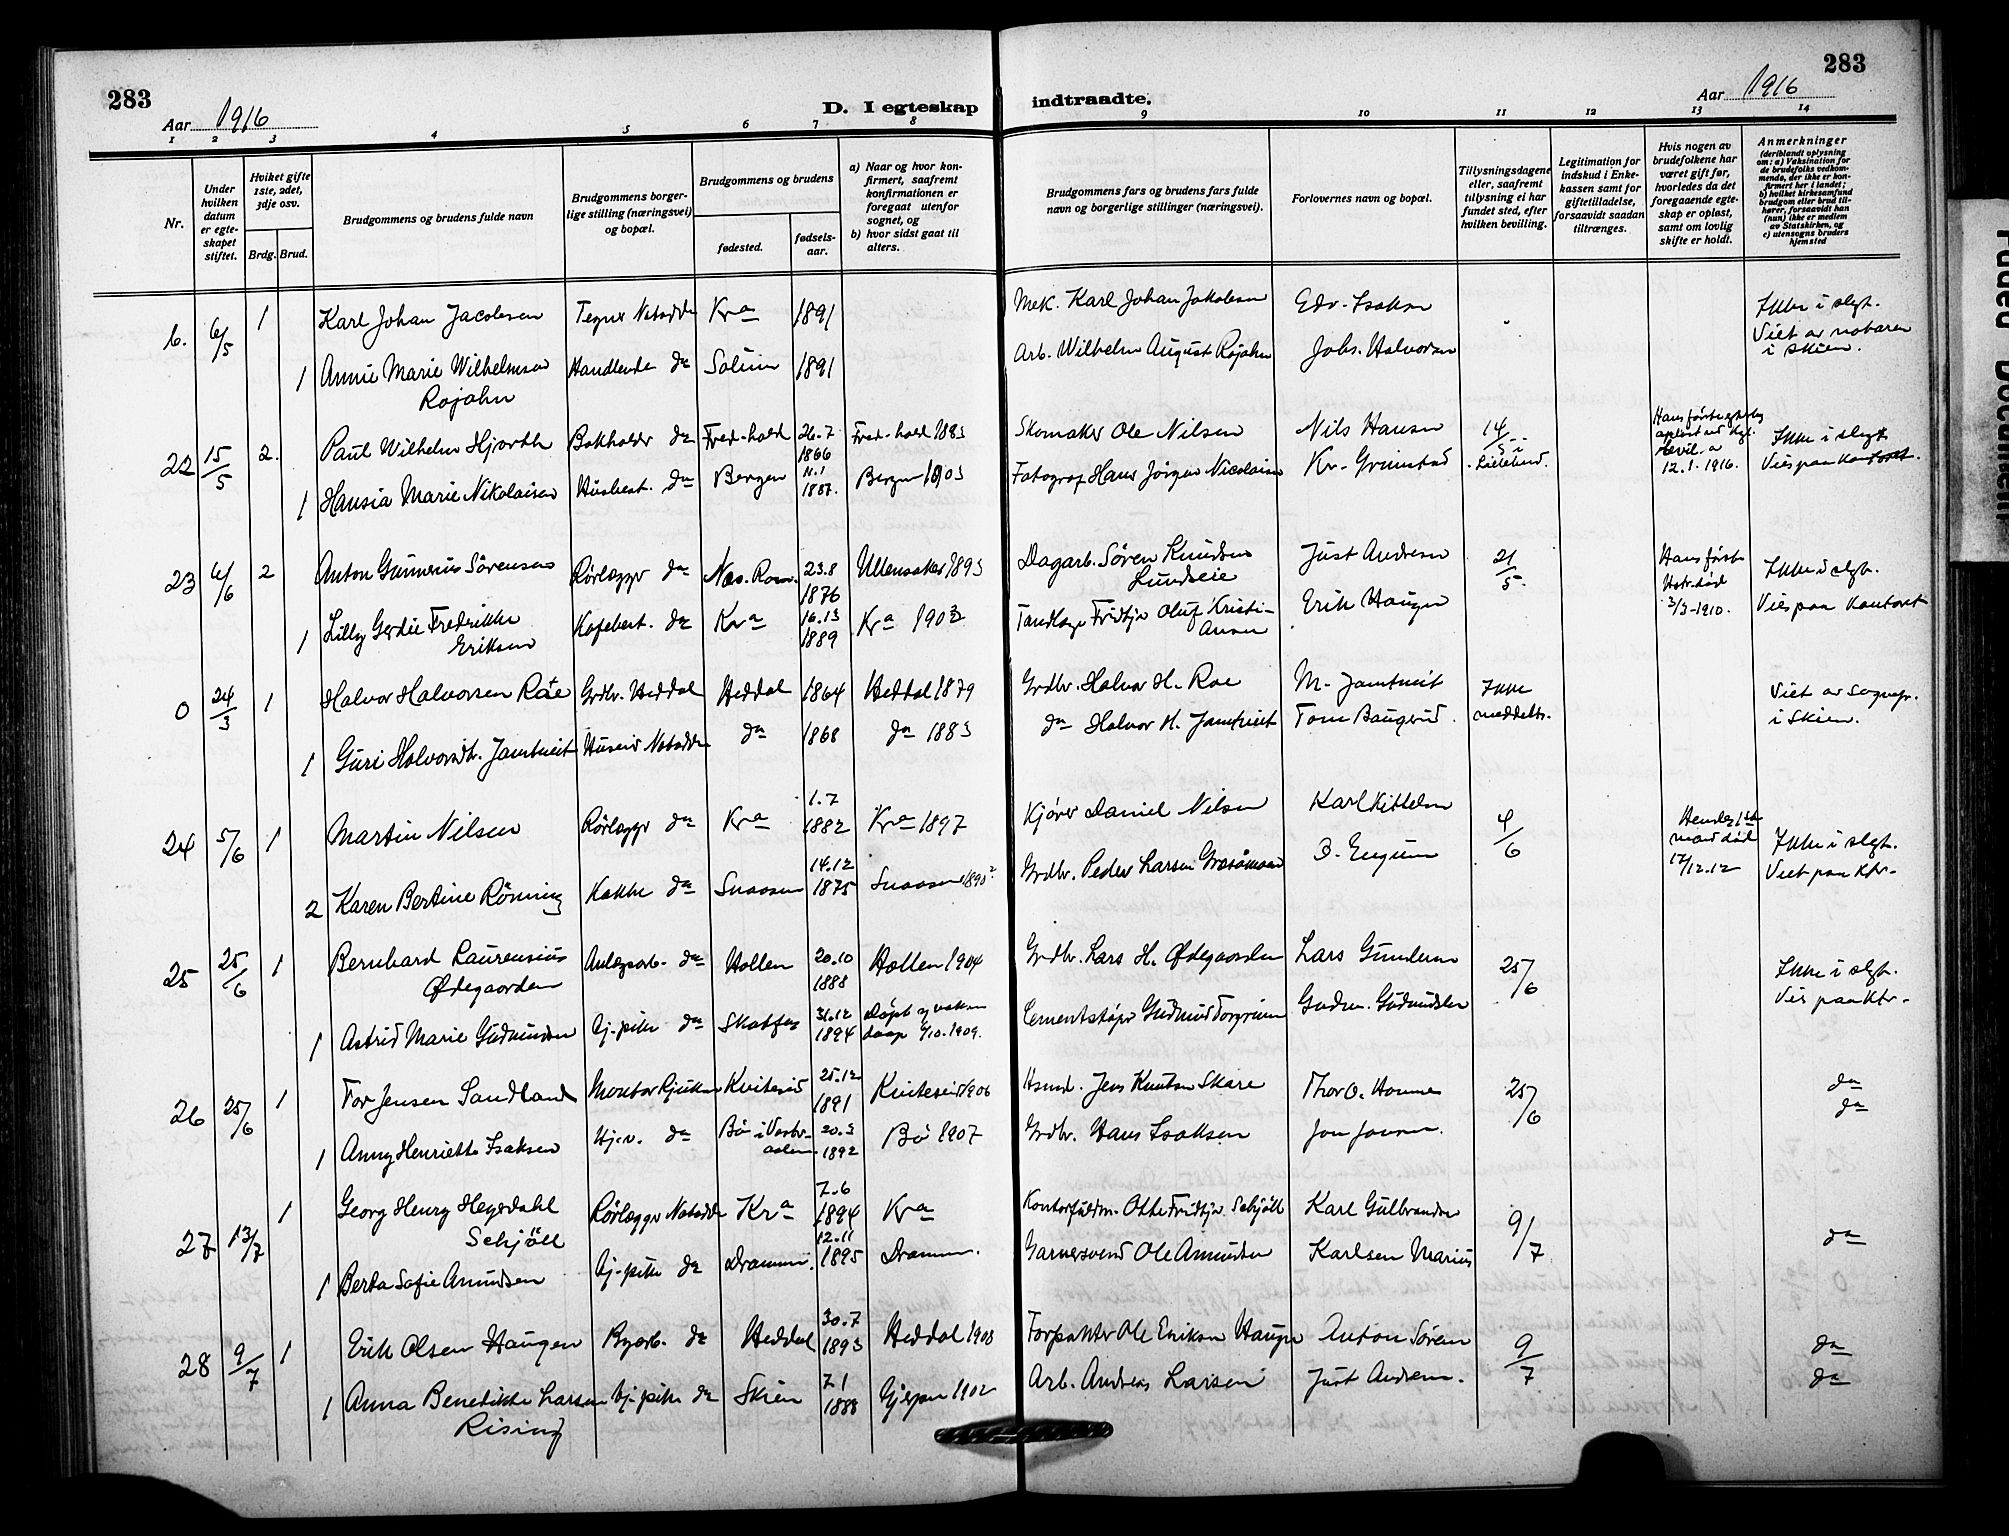 283
Aar 1916
D. I egteskap
indtraadte.
Aar 1916
283
1 2 3 4 5 6 7 8 9 10 11 12 13 14
Nr.
Under hvilken datum er egteskapet stiftet.
Hviket gifte 1ste, 2det, 3dje osv.
Brdg. Brud.
Brudgommens og brudens fulde navn
Brudgommens borgerlige stilling (næringsvei) og bopæl.
Brudgommens og brudens
fødested.
fødselsaar.
a) Naar og hvor konfirmert, saafremt konfirmationen er foregaat utenfor sognet, og
b) hvor sidst gaat til alters.
Brudgommens fars og brudens fars fulde navn og borgerlige stillinger (næringsvei).
Forlovernes navn og bopæl.
Tillysningsdagene eller, saafremt tillysning ei har fundet sted, efter hvilken bevilling.
Legitimation for indskud i Enkekassen samt for giftetilladelse, forsaavidt saadan tiltrænges.
Hvis nogen av brudefolkene har været gift før, hvorledes da det foregaaende egteskap er opløst, samt om lovlig skifte er holdt.
Anmerkninger
(deriblandt oplysning om: a) Vaksination for de brudefolks vedkommende, der ikke er konfirmert her i landet; b) hvilket kirkesamfund brudgom eller brud tilhører, forsaavidt han (hun) ikke er medlem av Statskirken, og c) utensogns bruders hjemsted
6. 6/5 1 Karl Johan Jacobsen Kra 1891 Mek. Karl Johan Jakobsen Edv. Isaksen Ikke i slegt.
Viet av notaren i Skien.
1 Annie Marie Wilhelmsen Rojahn Handlende do Solum 1891 Arb. Wilhelm August Rojahn Johs. Halvorsen
22 15/5 2. Paul Wilhelm Hjorth Bokholder do Fred-hald 26.7 1866 Fred-hald 1883 Skomaker Ole Nilsen Nils Hansen 14/5 i Lilleherad. 12.1.1916. Ikke i slegt
Vies paa kontoret.
1 Hansia Marie Nikolaisen Husbest. do Bergen 11.1 1887. Bergen 1903 Fotograf Hans Jörgen Nicolaisen Kr. Grimstad
23 4/6 2 Anton Gunnerius Sörensen Rørlægger do Nes. Rom. 23.8 1876 Ullensaker 1893 Dagarb. Søren Knudsen Lundseie Just Andresen 21/5 Hans første hstr. død 3/3-1910. Ikke i slegt.
Vies paa kontoret
1 Lilly Gerdie Fredrikke Eriksen Kafebest. do Kra 1889 Kra 1903 Fridtjv Oluf Kristiansen Erik Haugen
0 24/3 1 Halvor Halvorsen Roe Grdbr. Heddal Heddal 1864 Heddal 1879 Grdbr. Halvor H. Roe M. Jamtveit Ikke meddelt. Viet av sognepr. i Skien.
1 Guri Halvorsdtr. Jamtveit Notodden do 1868 do 1883 do Halvor H. Jamtveit Tom Baugerud
24 5/6 1 Martin Nilsen Rørlægger do Kra 1.7 1882 Kra 1897 Kjører Daniel Nilsen Karl Kittelsen 4/6 Hendes 1ste mand død 17/12.12 Ikke i slegt.
Viet paa ktr.
2 Karen Bertine Rönning Kokke do Snaasen 14.12 1875 Snaasen 1890? Grdbr. Peder Larsen B. Engum
25 25/6 1 Bernhard Laurensius Ødegaarden Anlægsarb. do Hollen 20.10 1888 Hollen 1904 Grdbr. Lars H. Ødegaarden Lars Gundersen 25/6 Ikke i slegt.
Vies paa Ktr.
1 Astrid Marie Gudmundsen tj-pike do Skotfos 31.12 1894 Døpt 1909. Cementstøper Gudmund Torgrimsen Gudm. Gudmundsen
26 25/6 1 Tor Jensen Sandland Montør Rjukan Kviteseid 25.12 1891 Kviteseid 1906 Hsmd. Jens Knutsen Skare Thor O. Homme 25/6 do
1 Anny Henriette Isaksen Hj.v. do Bö i Vesteraalen 20.3 1892 Bö 1907 Grdbr. Hans Isaksen Jon Jonsen. do
27 13/7 1 Georg Henry Heyerdahl Schjöll Rørlægger Notodden Kra 7.6 1894 Kra Kontorfuldm. Otto Fridtjv Schjöll Karl Gulbrandsen 9/7 do
1 Berta Sofie Amundsen tj-pike do Drammen. 12.11 1895 Drammen. Garversvend Ole Amundsen Karlsen Marius
28 9/7 1 Erik Olsen Haugen Byarb. do Heddal 30.7 1893 Heddal 1908 Forpakter Ole Eriksen Haugen Anton Sörensen 9/7 do
1 Anna Benedikte Larsen Rising tj-pike do Skien 7.1 1888 Gjerpen 1902 Arb. Andreas Larsen Just Andresen. do